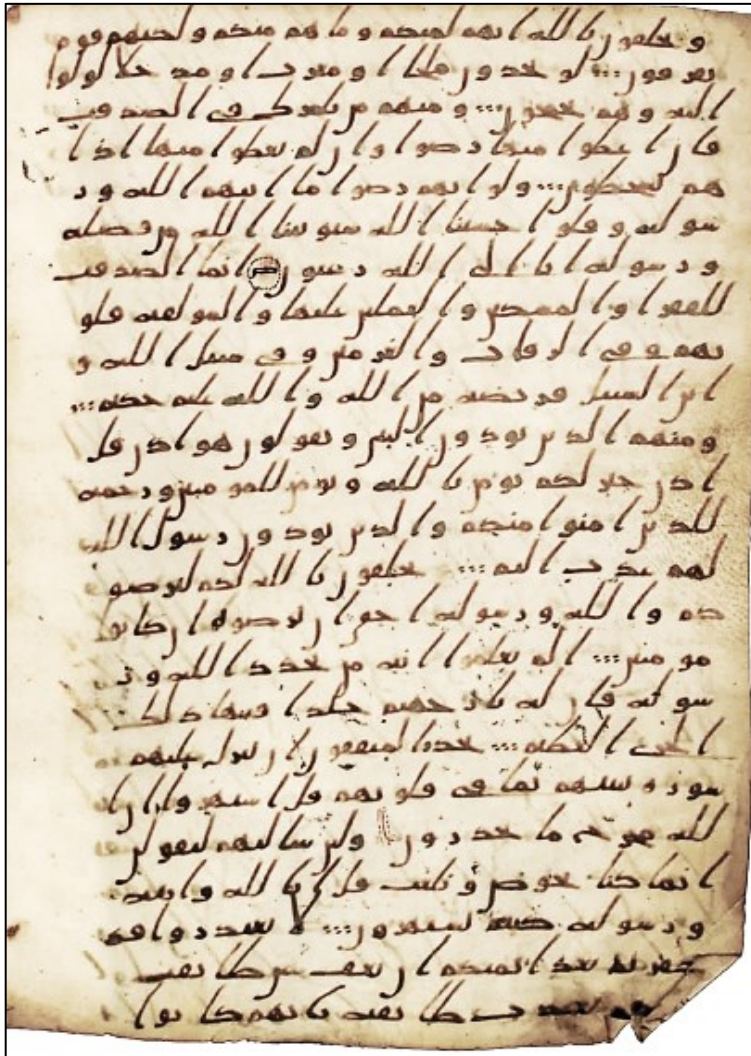 و يحلفون بالله انهم لمنكم و ما هم منكم و لكنهم قوم
يفرقون لو يجدون ملجا او مغرت او مدخلا لولوا
اليه و هم يجمحون و منهم من يلمزك في الصدقت
فان اعطوا منها رضوا و ان لم يعطوا منها اذا
هم يسخطون و لو انهم رضوا ما اتيهم الله و ر
سوله و قلوا حسبنا الله سيوتينا الله من فضله
و رسوله انا الى الله رغبون انما الصدقت
للفقرا و المسكين و العملين عليها و المولفه قلو
بهم و في الرقاب و الغرمين و في سبيل الله و
ابن السبيل فريضه من الله و الله عليم حكيم
و منهم الذين يوذون النبي و يقولون هو اذن قل
اذن خير لكم يومن بالله و يومن للمومنين و رحمه
للذين امنوا منكم و الذين يوذون رسول الله
لهم عذب اليم يحلفون بالله لكم ليرضو
كم و الله و رسوله احق ان يرضوه ان كانوا
مومنين الم يعلموا انه من يحدد الله و ر
سوله فان له نار جهنم خلدا فيها ذلك
الخزي العظيم يحذر المنفقون ان تنزل عليهم
سوره تنبيهم بما في قلوبهم قل استهزوا ان ا
لله مخرج ما تحذرون ولين سالتهم ليقولن
انما كنا نخوض و نلعب قل ابالله و ايته
و رسوله كنتم تستهزون لا تعتذروا قد
كفرتم بعد ايمنكم ان نعف عن طايفه
منكم نعذب طايفه بانهم كانوا